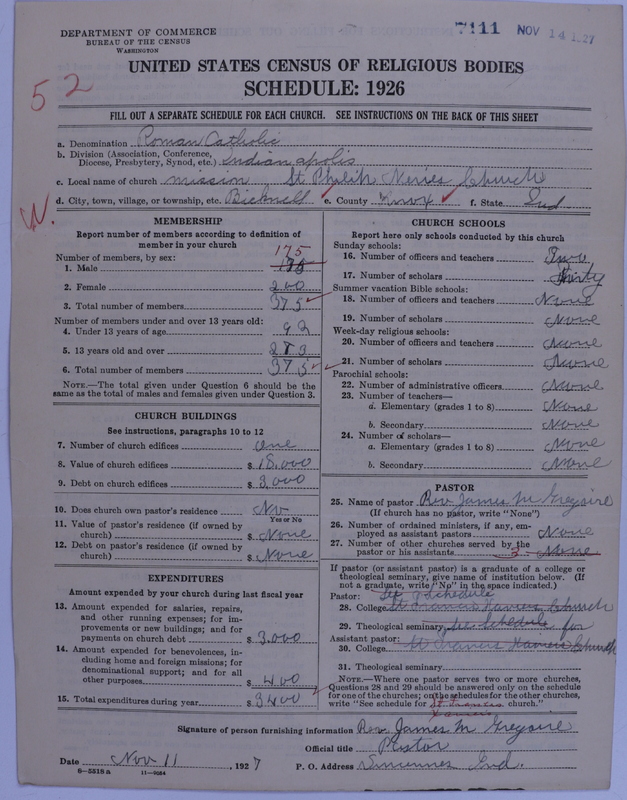 DEPARTMENT OF COMMERCE
BUREAU OF THE CENSUS
WASHINGTON
7111 NOV 14 1927
52
UNITED STATES CENSUS OF RELIGIOUS BODIES
SCHEDULE: 1926
FILL OUT A SEPARATE SCHEDULE FOR EACH CHURCH. SEE INSTRUCTIONS ON THE BACK OF THIS SHEET
a. Denomination Roman Catholic
b. Division (Association, Conference,
Diocese, Presbytery, Synod, etc.) Indianapolis
c. Local name of church mission St Philip Neries Church
d. City, town, village, or township, etc. Bicknell e. County Knox f. State Ind.
W.
MEMBERSHIP
Report number of members according to definition of
member in your church
Number of members, by sex:
175
1. Male
2. Female 200
3. Total number of members 375
Number of members under and over 13 years old:
4. Under 13 years of age 92
5. 13 years old and over 283
6. Total number of members 375
NOTE.—The total given under Question 6 should be the
same as the total of males and females given under Question 3.
CHURCH BUILDINGS
See instructions, paragraphs 10 to 12
7. Number of church edifices one
8. Value of church edifices $ 18.000
9. Debt on church edifices $ 3.000
10. Does church own pastor's residence No
Yes or No
11. Value of pastor's residence (if owned by
church) $ None
12. Debt on pastor's residence (if owned by
church) $ None
EXPENDITURES
Amount expended by your church during last fiscal year
13. Amount expended for salaries, repairs,
and other running expenses; for im-
provements or new buildings; and for
payments on church debt $ 3.000
14. Amount expended for benevolences, in-
cluding home and foreign missions; for
denominational support; and for all
other purposes $ 400
15. Total expenditures during year $ 3400
CHURCH SCHOOLS
Report here only schools conducted by this church
Sunday schools:
16. Number of officers and teachers Two
17. Number of scholars thirty
Summer vacation Bible schools:
18. Number of officers and teachers None
19. Number of scholars None
Week-day religious schools:
20. Number of officers and teachers None
21. Number of scholars None
Parochial schools:
22. Number of administrative officers None
23. Number of teachers—
a. Elementary (grades 1 to 8) None
b. Secondary None
24. Number of scholars—
a. Elementary (grades 1 to 8) None
b. Secondary None
PASTOR
25. Name of pastor Rev James M Gregoire
(If church has no pastor, write "None")
26. Number of ordained ministers, if any, em-
ployed as assistant pastors None
27. Number of other churches served by the
pastor or his assistants 3 None
If pastor (or assistant pastor) is a graduate of a college or
theological seminary, give name of institution below. (If
not a graduate, write "No" in the space indicated.)
Pastor: See Schedule
28. College St Francis Xavier Church
29. Theological seminary See Schedule for
Assistant pastor:
30. College St Francis Xavier Church
31. Theological seminary
NOTE.—Where one pastor serves two or more churches,
Questions 28 and 29 should be answered only on the schedule
for one of the churches; on the schedules for the other churches,
write "See schedule for St Francis church."
Xavier's
Signature of person furnishing information Rev James M Gregoire
Official title Pastor
Date Nov 11, 1927 P. O. Address Vincennes Ind.
6-5518 a 11-9054